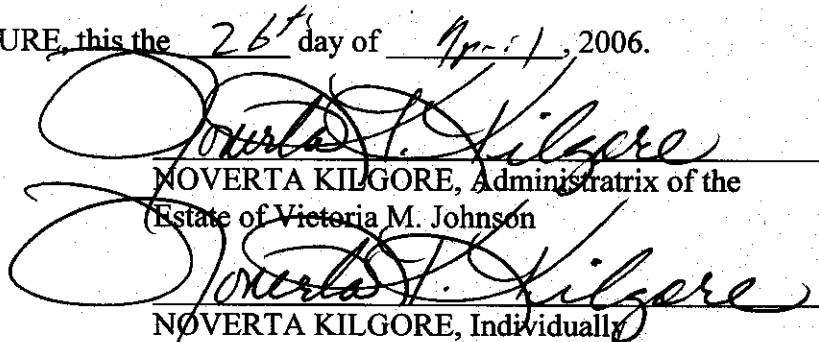 URE, this the 26th day of April, 2006.
Noverta T. Kilgore
NOVERTA KILGORE, Administratrix of the
Estate of Victoria M. Johnson
Noverta T. Kilgore
NOVERTA KILGORE, Individually